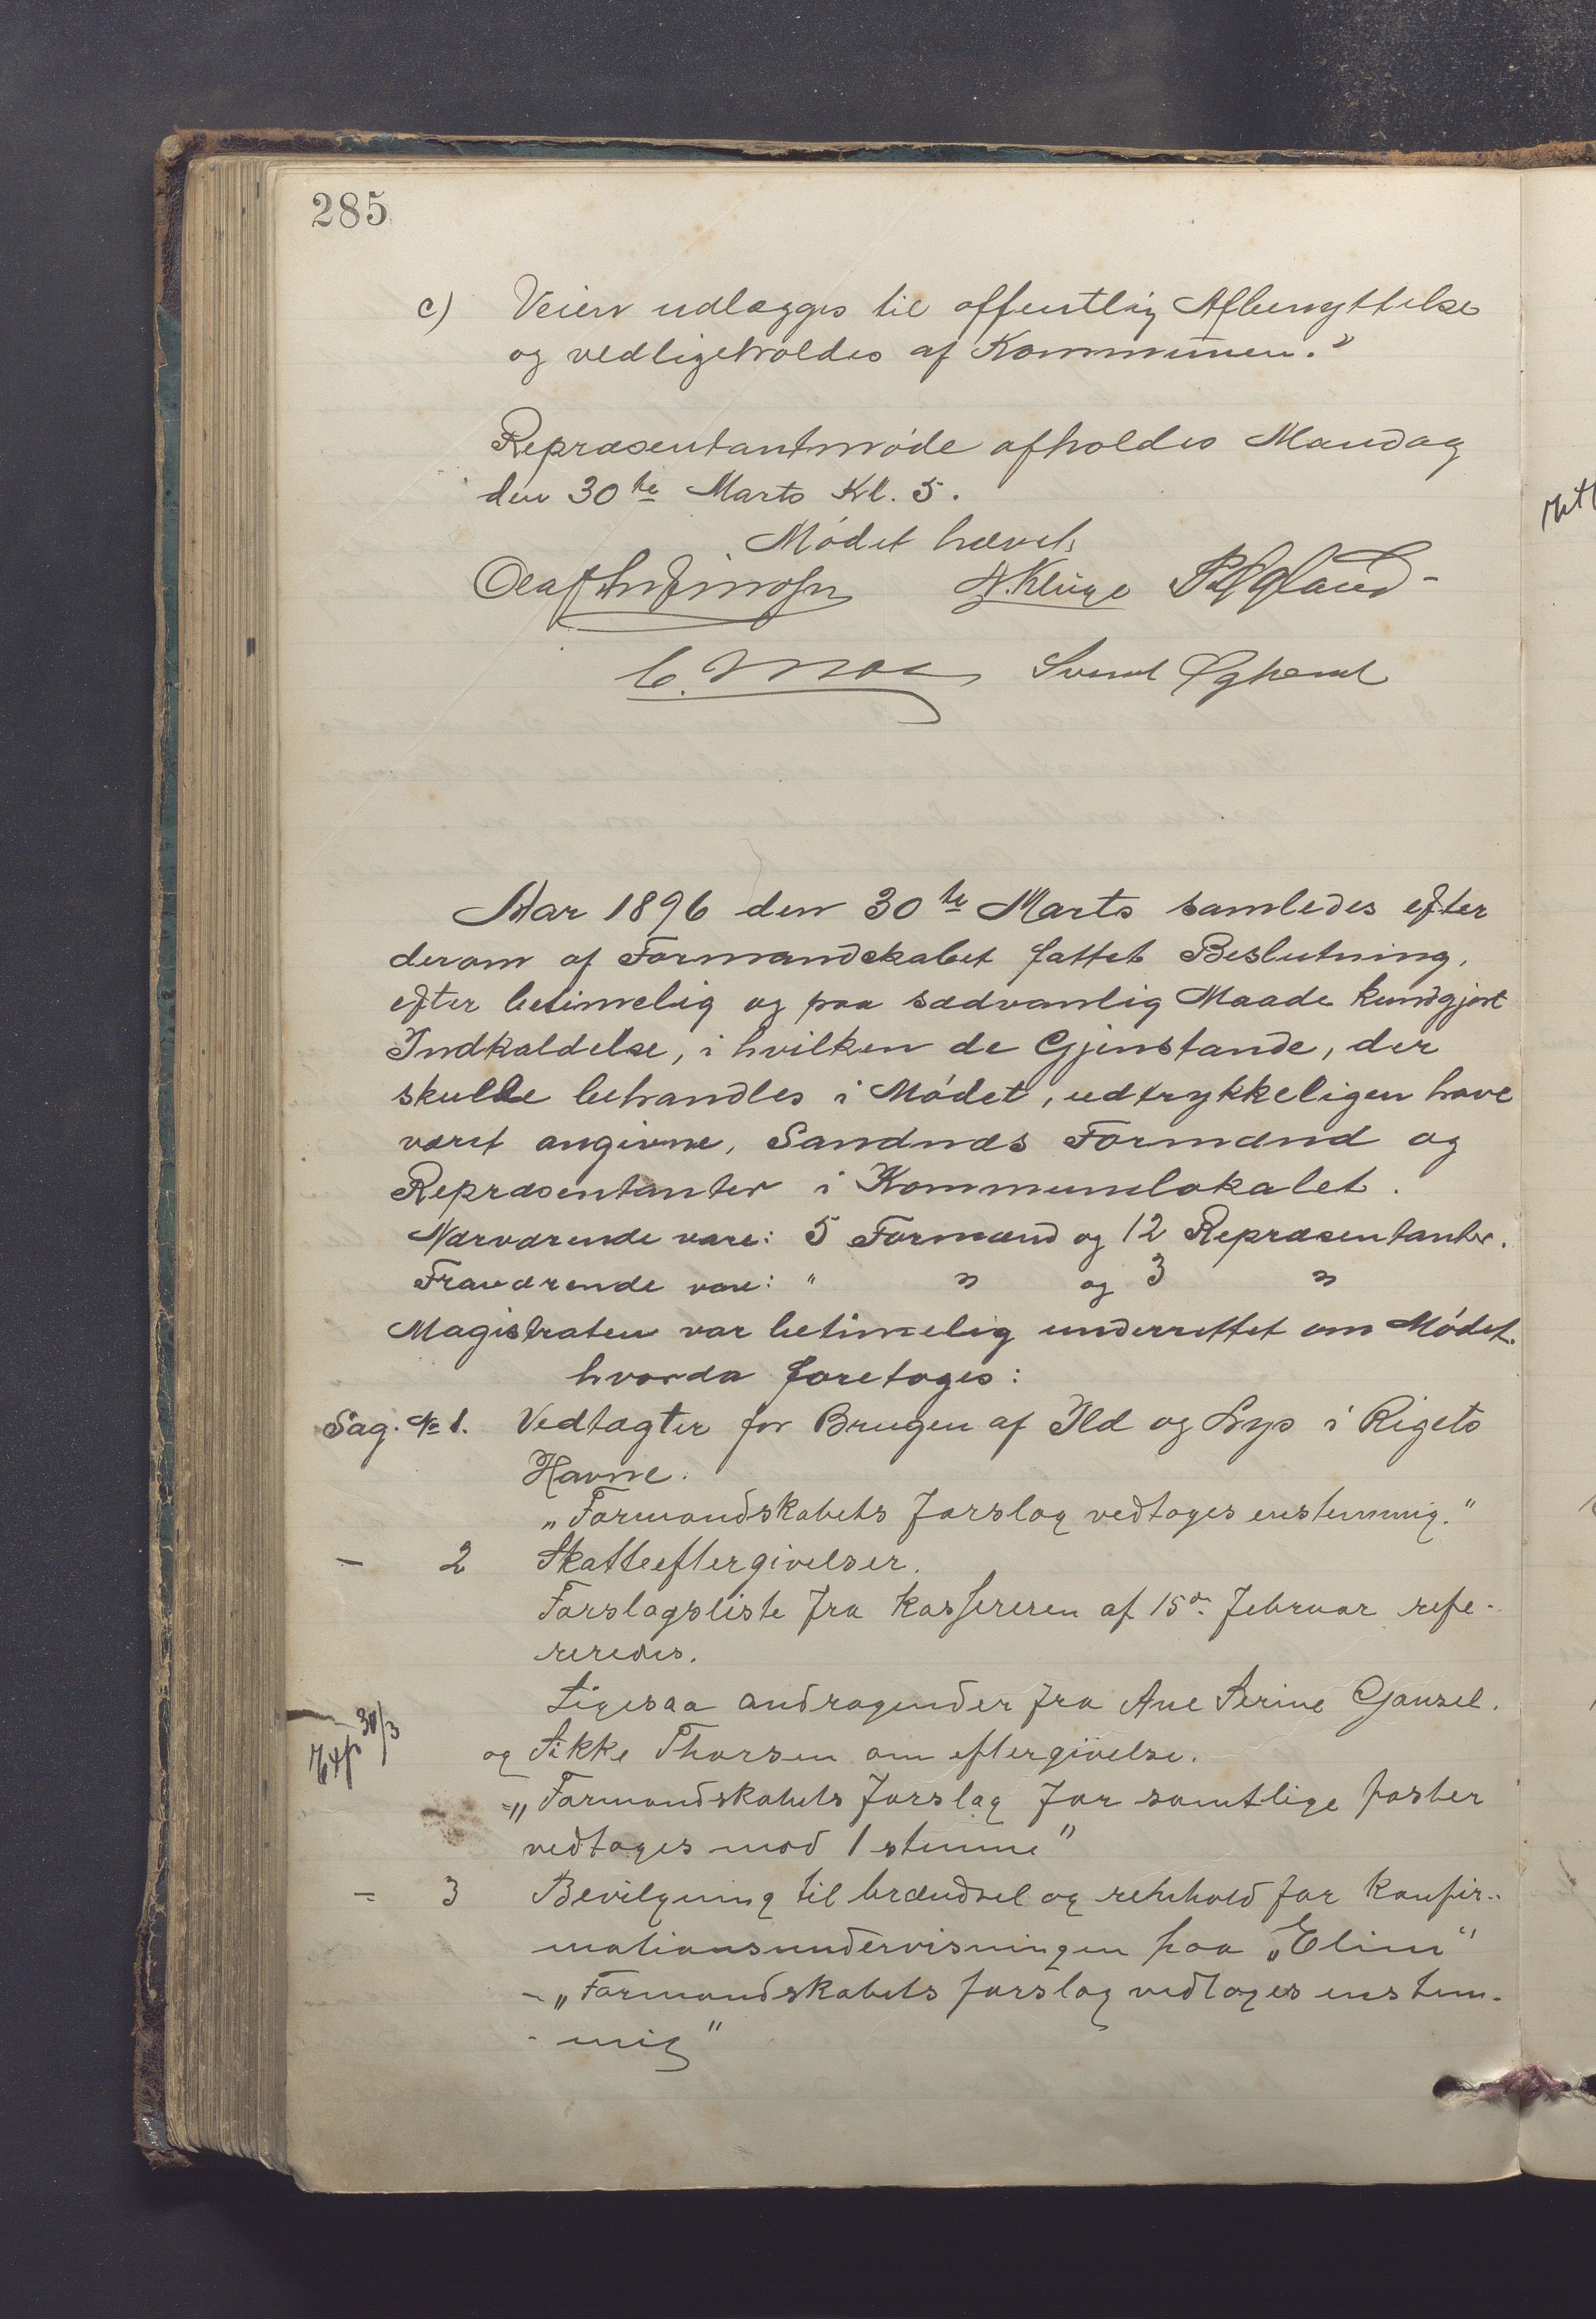 285
c) Veien udlægges til offentlig Afbenyttelse
og vedligeholdes af Kommunen."
Repræsentantmøde afholdes Mandag
den 30te Marts Kl. 5.
Mødet hævet.
A. Kluge
Svend
Aar 1896 den 30te Marts samledes efter
derom af Formandskabet fattet Beslutning,
efter betimelig og paa sædvanlig Maade kundgjort
Indkaldelse, i hvilken de Gjenstande, der
skulle behandles i Mødet, udtrykkeligen have
været angivne, Sandnæs Formænd og
Repræsentanter i Kommunelokalet.
Nærværende vare: 5 Formænd og 12 Repræsentanter.
Fraværende vare: " " og 3 "
Magistraten var betimelig underrettet om Mødet.
hvorda foretoges:
Sag. № 1. Vedtægter for Brugen af Ild og Lys i Rigets
Havne.
„Formandskabets forslag vedtages enstemmig."
— 2 Skatteeftergivelser.
Forslagsliste fra kassereren af 15de februar refe-
reredes.
Ligesaa andragender fra Ane Serine Gausel.
Exp 30/3
og Sikke Thorsen om eftergivelse.
„Formandskabets forslag for samtlige poster
vedtages mod 1 stemme"
— 3 Bevilgning til brændsel og renhold for konfir-
mationsundervisningen paa „Elim"
- „Formandskabets forslag vedtages enstem-
- mig"